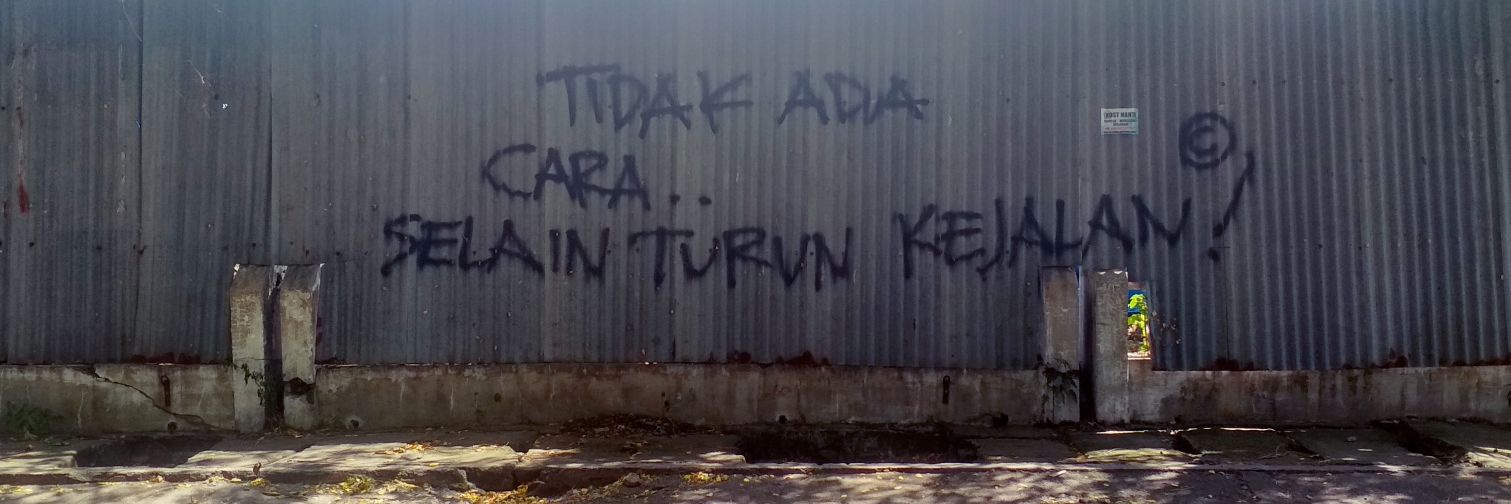 TIDAK ADA
CARA..
SELAIN TURUN KEJALAN!
©
KOST NANDA